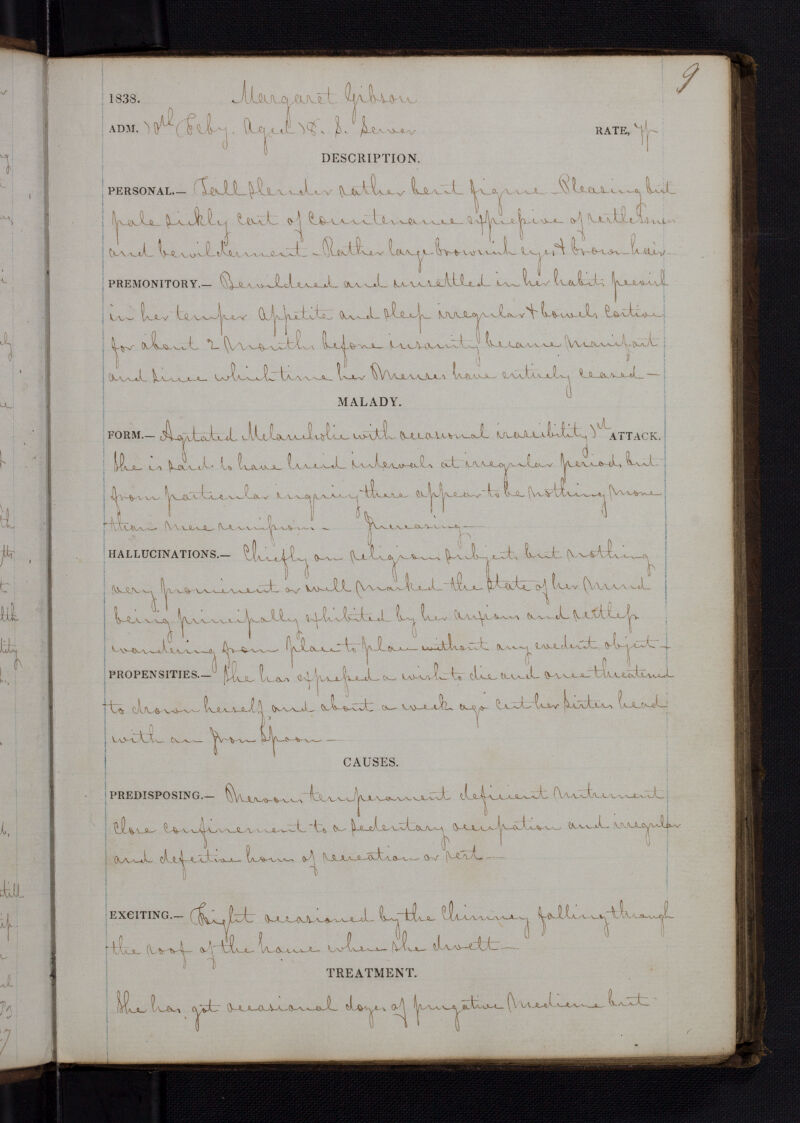 9
1838. Margaret Gibson
ADM. 10th Feby. Aged 18. S. Sewer RATE, 7/-
DESCRIPTION.
PERSONAL.— Tall slender rather bent figure - Pleasing but
pale sickly cast of countenance expressive of restlessness
and bewilderment - Rather large brownish eyes & brown hair
PREMONITORY.— Bewildered and unsettled in her habits peevish
in her temper Appetite and sleep irregular & bowels costive
for about 2 Months before insanity became Manifest
and since which time her Menses have entirely ceased —
MALADY.
FORM.— Agitated Melancholia with occasional irascibility 1st ATTACK.
She is said to have lucid intervals at irregular periods but
from particular inquiry there appear to be nothing more
than mere remissions - Increasing —
HALLUCINATIONS.— Chiefly on religious subjects but nothing
very prominent or well marked the state of her Mind
being principally exhibited by her anxious and restless
wandering from place to place without any evedent object -
PROPENSITIES.— She has expressed a wish to die and once threatened
to drown herself and about a week ago Cut her sisters head
with an Iron Spoon —
CAUSES.
PREDISPOSING.— Nervous temperament deficient Nutriment
Close confinement to a sedentary occupation and irregular
and defective hours of recreation or rest —
EXCITING.— Fright occasioned by the Chimney falling through
the roof of the house where she dwelt —
TREATMENT.
She has got occasional doses of purgative Medicine but